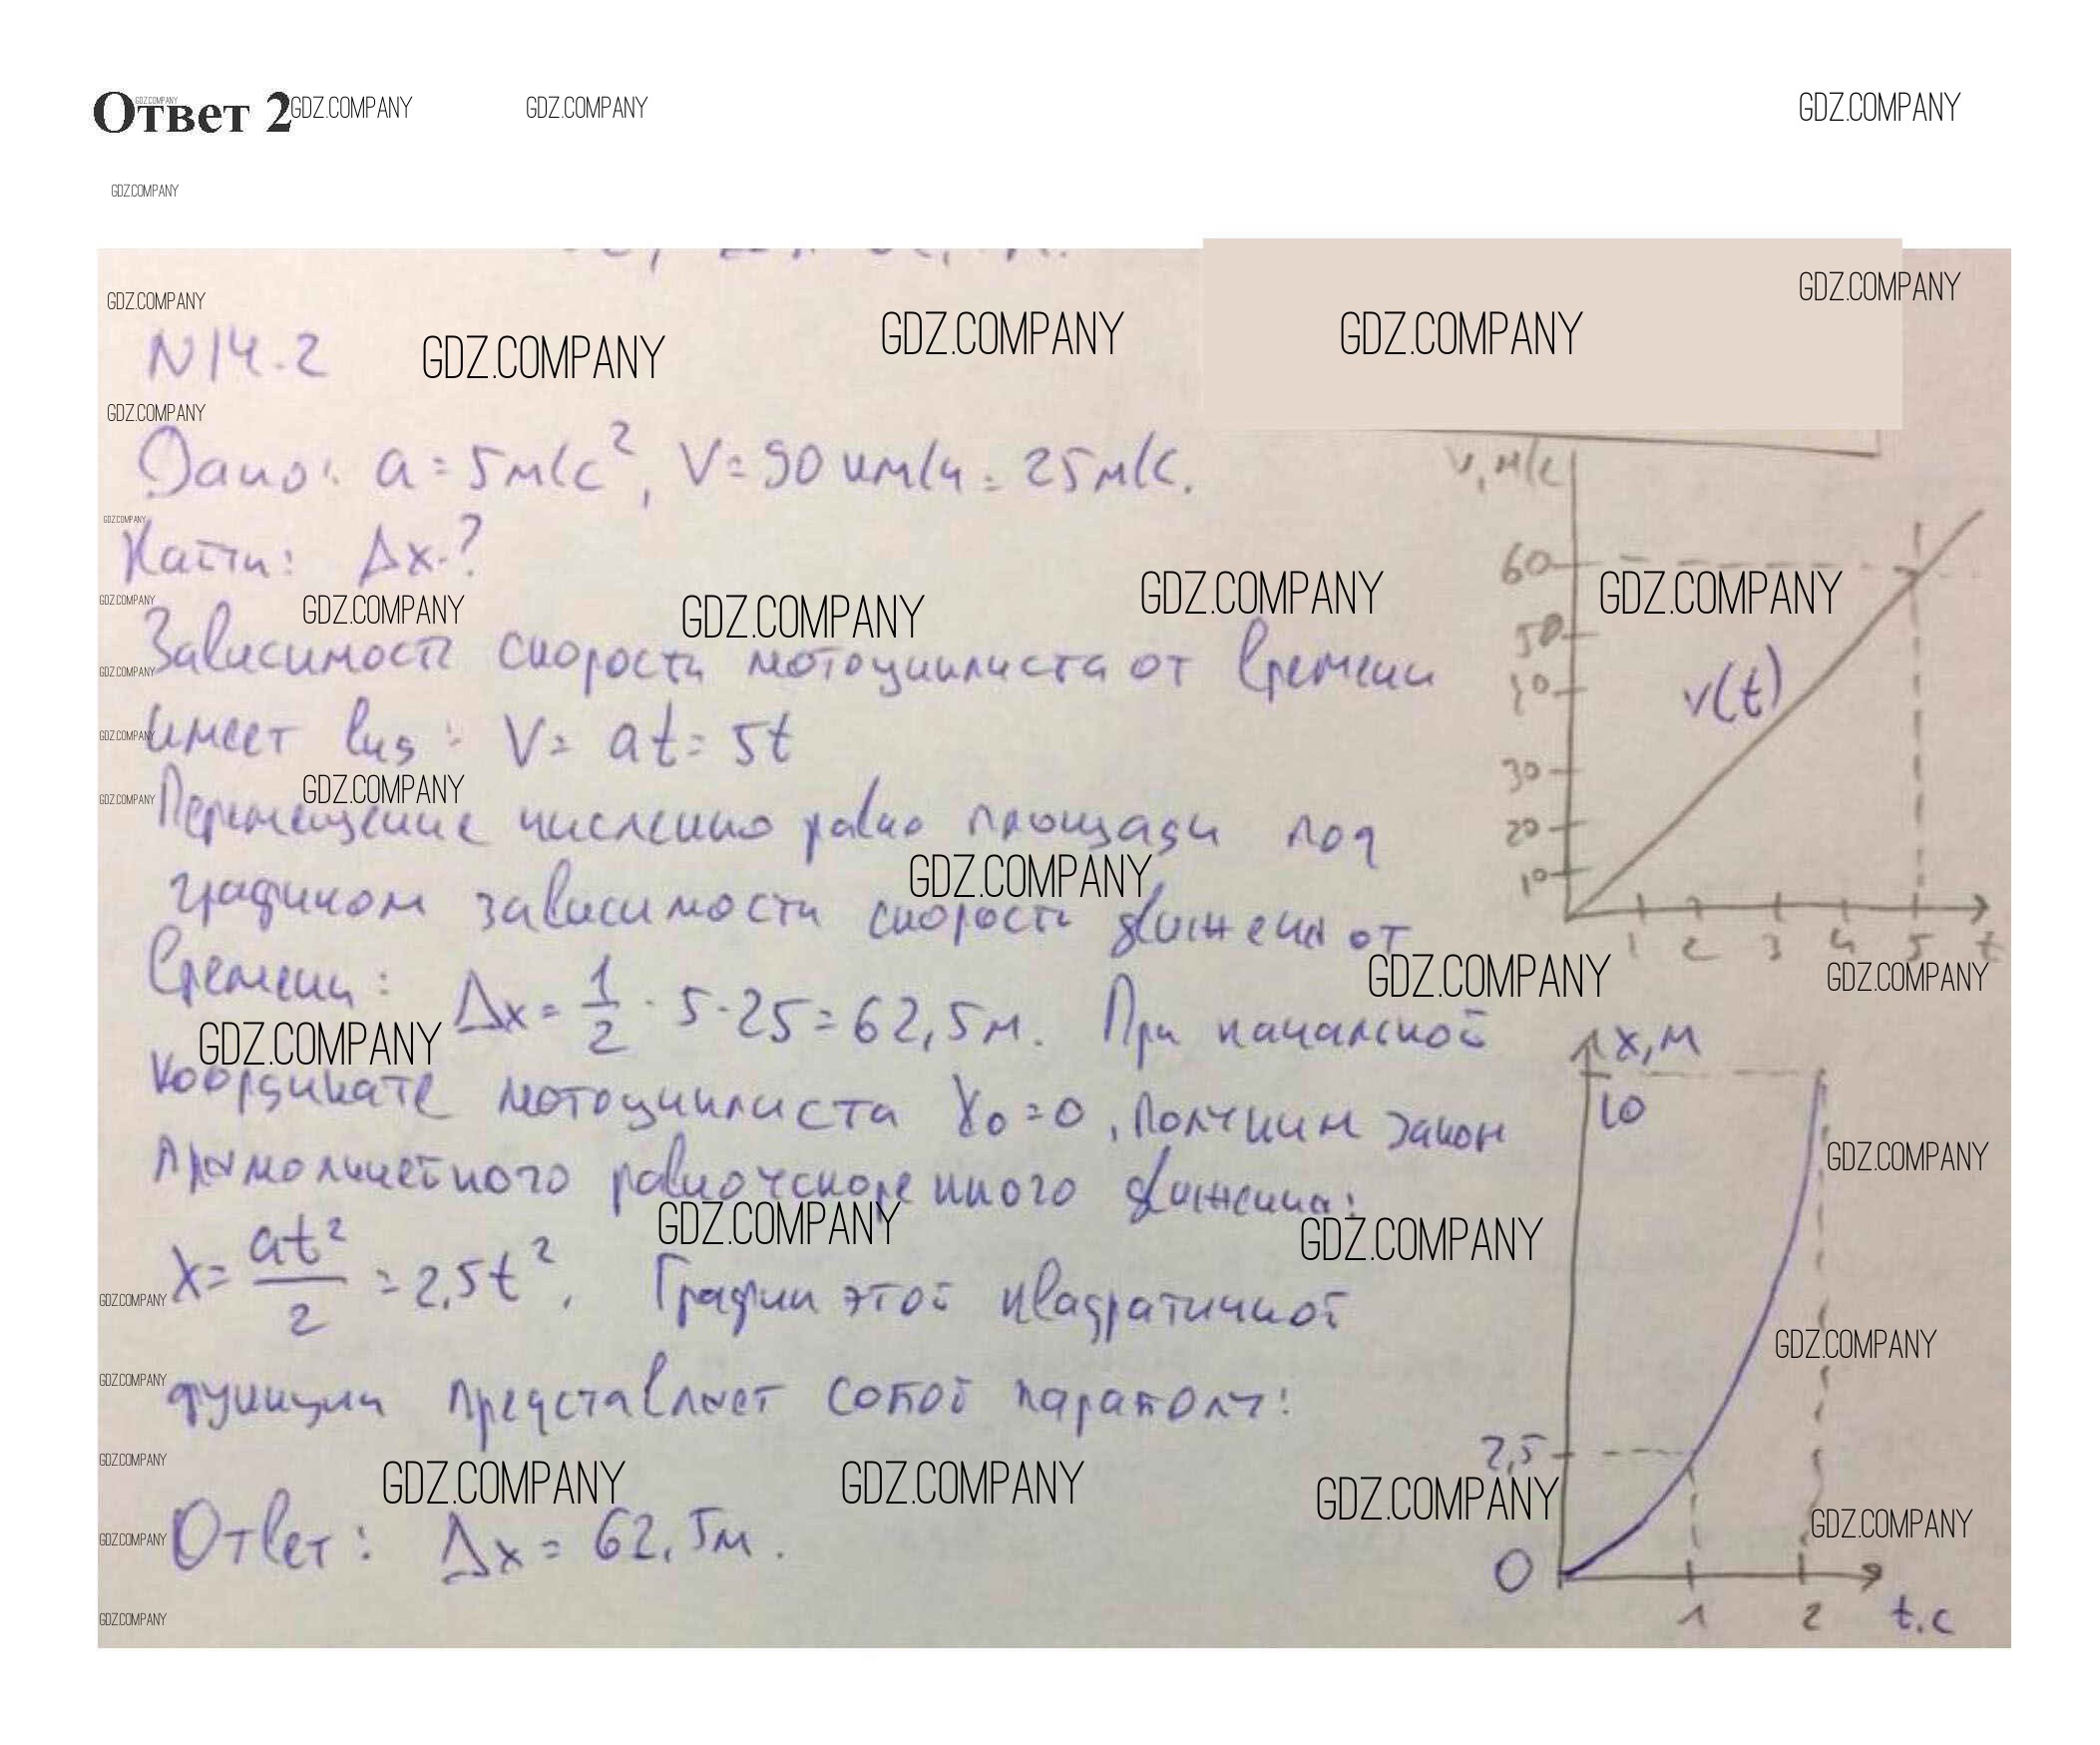 Ответ 2
N14.2
Дано: a = 5 м/с², V = 90 км/ч = 25 м/с.
Найти: Δx-?
Зависимость скорости мотоциклиста от времени
имеет вид: V = at = 5t
Перемещение численно равно площади под
графиком зависимости скорости движения от
времени: Δx = 1/2 · 5 · 25 = 62,5 м. При начальной
координате мотоциклиста x₀ = 0, получим закон
прямолинейного равноускоренного движения:
x = at²/2 = 2,5t². График этой квадратичной
функции представляет собой параболу:
Ответ: Δx = 62,5 м.
v, м/с
60
50
30
20
10
v(t)
1 2 3 4 5 t
x, м
10
2,5
0
1 2 t.c
GDZ.COMPANY